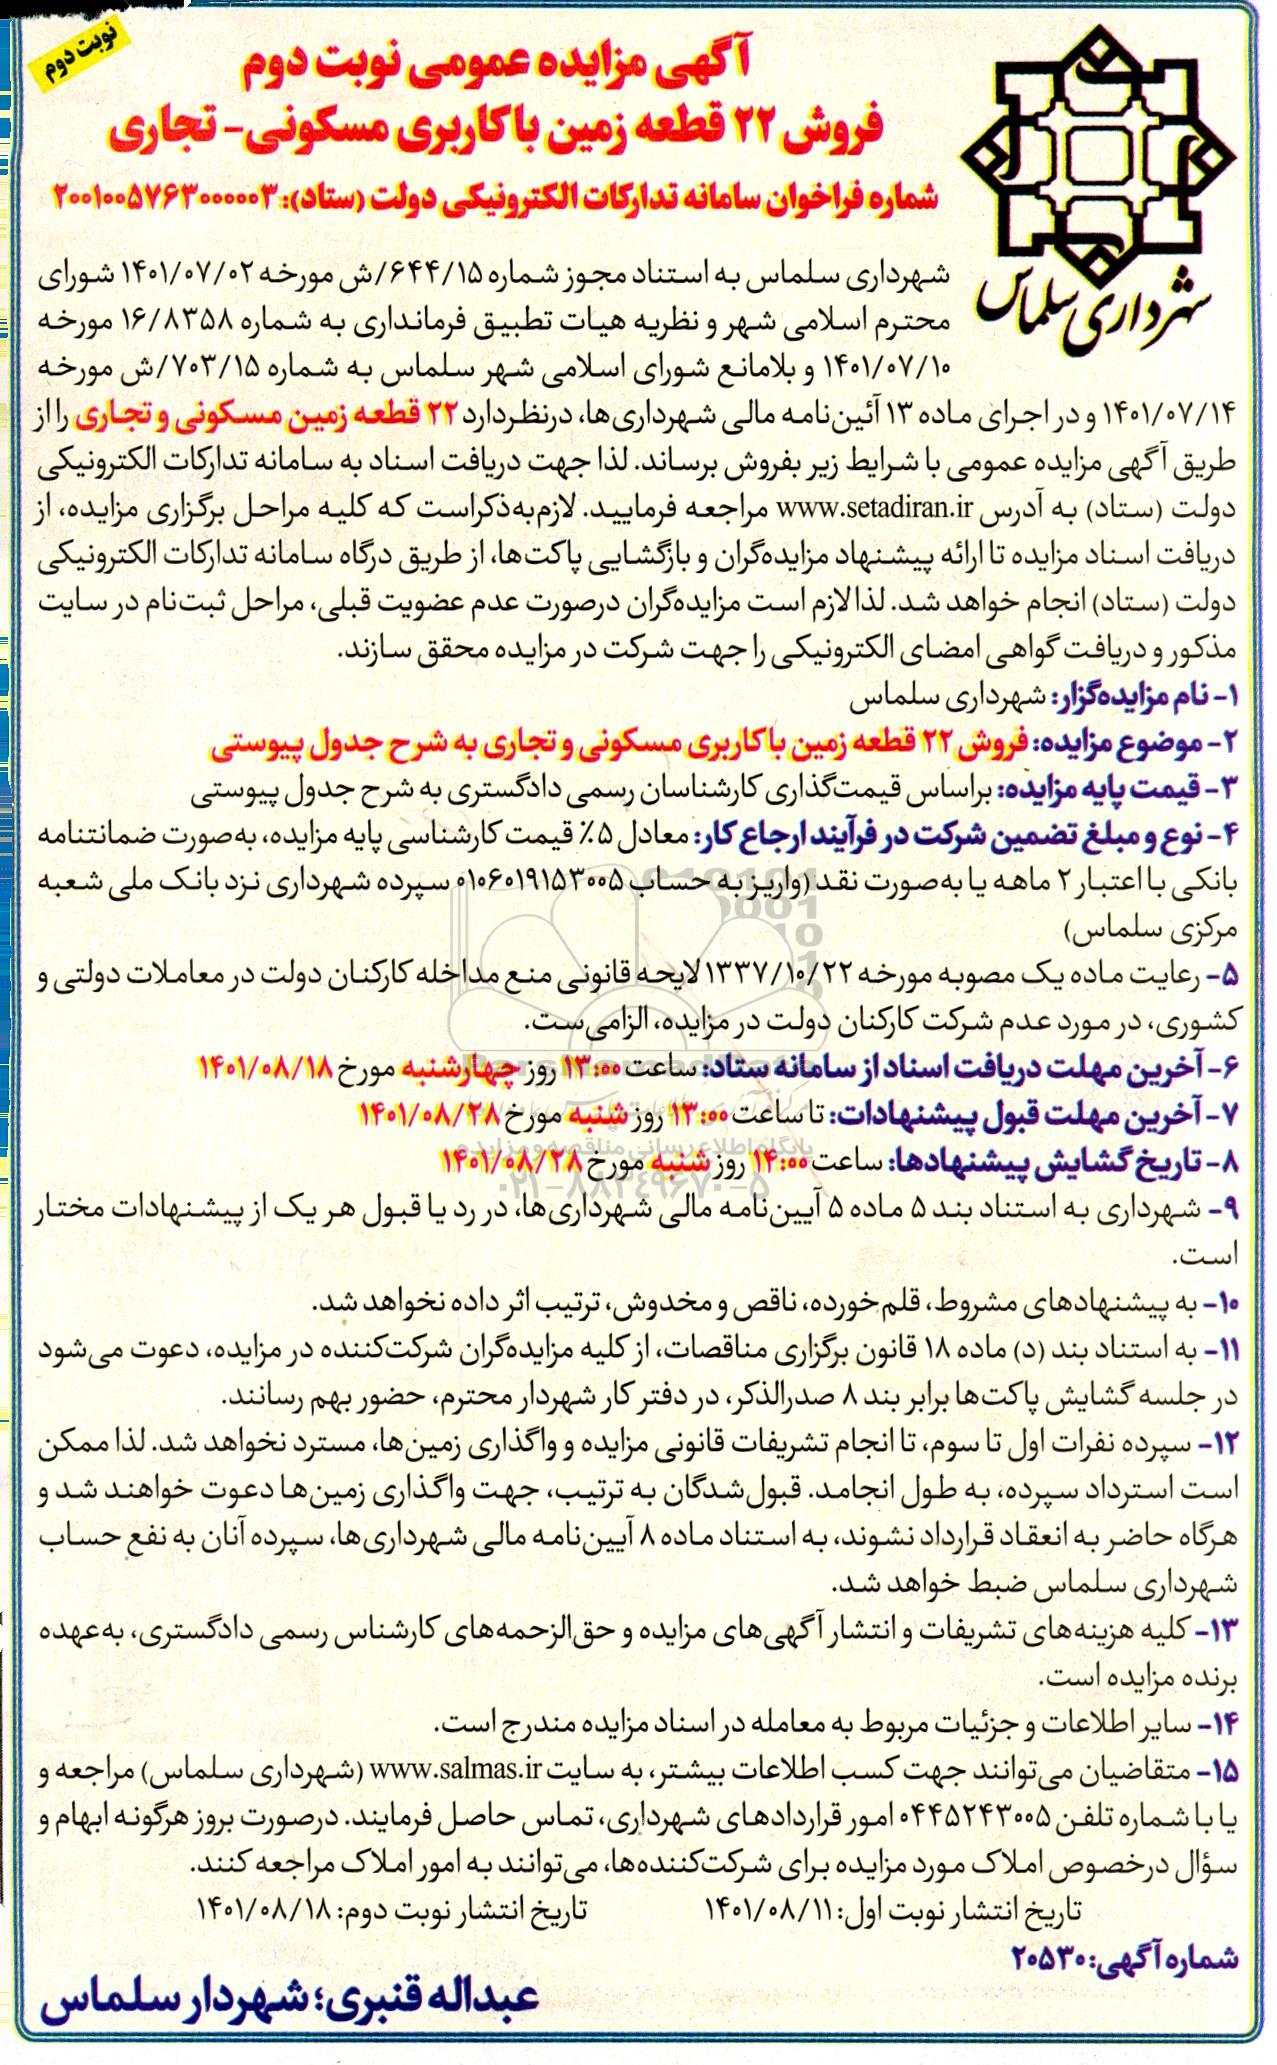 نوبت دوم
آگهی مزایده عمومی نوبت دوم
فروش ۲۲ قطعه زمین با کاربری مسکونی- تجاری
شماره فراخوان سامانه تدارکات الکترونیکی دولت (ستاد): ۲۰۰۱۰۰۵۷۶۳۰۰۰۰۰۳
شهرداری سلماس
شهرداری سلماس به استناد مجوز شماره ۶۴۴/۱۵/ش مورخه ۱۴۰۱/۰۷/۰۲ شورای
محترم اسلامی شهر و نظریه هیات تطبیق فرمانداری به شماره ۱۶/۸۳۵۸ مورخه
۱۴۰۱/۰۷/۱۰ و بلامانع شورای اسلامی شهر سلماس به شماره ۷۰۳/۱۵/ش مورخه
۱۴۰۱/۰۷/۱۴ و در اجرای ماده ۱۳ آئین‌نامه مالی شهرداری‌ها، درنظردارد ۲۲ قطعه زمین مسکونی و تجاری را از
طریق آگهی مزایده عمومی با شرایط زیر بفروش برساند. لذا جهت دریافت اسناد به سامانه تدارکات الکترونیکی
دولت (ستاد) به آدرس www.setadiran.ir مراجعه فرمایید. لازم‌به‌ذکراست که کلیه مراحل برگزاری مزایده، از
دریافت اسناد مزایده تا ارائه پیشنهاد مزایده‌گران و بازگشایی پاکت‌ها، از طریق درگاه سامانه تدارکات الکترونیکی
دولت (ستاد) انجام خواهد شد. لذا لازم است مزایده‌گران درصورت عدم عضویت قبلی، مراحل ثبت‌نام در سایت
مذکور و دریافت گواهی امضای الکترونیکی را جهت شرکت در مزایده محقق سازند.
۱- نام مزایده‌گزار: شهرداری سلماس
۲- موضوع مزایده: فروش ۲۲ قطعه زمین با کاربری مسکونی و تجاری به شرح جدول پیوستی
۳- قیمت پایه مزایده: براساس قیمت‌گذاری کارشناسان رسمی دادگستری به شرح جدول پیوستی
۴- نوع و مبلغ تضمین شرکت در فرآیند ارجاع کار: معادل ۵٪ قیمت کارشناسی پایه مزایده، به‌صورت ضمانتنامه
بانکی با اعتبار ۲ ماهه یا به‌صورت نقد (واریز به حساب ۰۱۰۶۰۱۹۱۵۳۰۰۵ سپرده شهرداری نزد بانک ملی شعبه
مرکزی سلماس)
۵- رعایت ماده یک مصوبه مورخه ۱۳۳۷/۱۰/۲۲ لایحه قانونی منع مداخله کارکنان دولت در معاملات دولتی و
کشوری، در مورد عدم شرکت کارکنان دولت در مزایده، الزامی‌ست.
۶- آخرین مهلت دریافت اسناد از سامانه ستاد: ساعت ۱۳:۰۰ روز چهارشنبه مورخ ۱۴۰۱/۰۸/۱۸
۷- آخرین مهلت قبول پیشنهادات: تا ساعت ۱۳:۰۰ روز شنبه مورخ ۱۴۰۱/۰۸/۲۸
پایگاه اطلاع رسانی مناقصه و مزایده
۸- تاریخ گشایش پیشنهادها: ساعت ۱۴:۰۰ روز شنبه مورخ ۱۴۰۱/۰۸/۲۸
۰۲۱-۸۸۳۴۹۶۷۰-۵
۹- شهرداری به استناد بند ۵ ماده ۵ آیین‌نامه مالی شهرداری‌ها، در رد یا قبول هر یک از پیشنهادات مختار
است.
۱۰- به پیشنهادهای مشروط، قلم‌خورده، ناقص و مخدوش، ترتیب اثر داده نخواهد شد.
۱۱- به استناد بند (د) ماده ۱۸ قانون برگزاری مناقصات، از کلیه مزایده‌گران شرکت‌کننده در مزایده، دعوت می‌شود
در جلسه گشایش پاکت‌ها برابر بند ۸ صدرالذکر، در دفتر کار شهردار محترم، حضور بهم رسانند.
۱۲- سپرده نفرات اول تا سوم، تا انجام تشریفات قانونی مزایده و واگذاری زمین‌ها، مسترد نخواهد شد. لذا ممکن
است استرداد سپرده، به طول انجامد. قبول‌شدگان به ترتیب، جهت واگذاری زمین‌ها دعوت خواهند شد و
هرگاه حاضر به انعقاد قرارداد نشوند، به استناد ماده ۸ آیین‌نامه مالی شهرداری‌ها، سپرده آنان به نفع حساب
شهرداری سلماس ضبط خواهد شد.
۱۳- کلیه هزینه‌های تشریفات و انتشار آگهی‌های مزایده و حق‌الزحمه‌های کارشناس رسمی دادگستری، به‌عهده
برنده مزایده است.
۱۴- سایر اطلاعات و جزئیات مربوط به معامله در اسناد مزایده مندرج است.
۱۵- متقاضیان می‌توانند جهت کسب اطلاعات بیشتر، به سایت www.salmas.ir (شهرداری سلماس) مراجعه و
یا با شماره تلفن ۰۴۴۵۲۴۳۰۰۵ امور قراردادهای شهرداری، تماس حاصل فرمایند. درصورت بروز هرگونه ابهام و
سؤال درخصوص املاک مورد مزایده برای شرکت‌کننده‌ها، می‌توانند به امور املاک مراجعه کنند.
تاریخ انتشار نوبت اول: ۱۴۰۱/۰۸/۱۱ تاریخ انتشار نوبت دوم: ۱۴۰۱/۰۸/۱۸
شماره آگهی: ۲۰۵۳۰
عبداله قنبری؛ شهردار سلماس